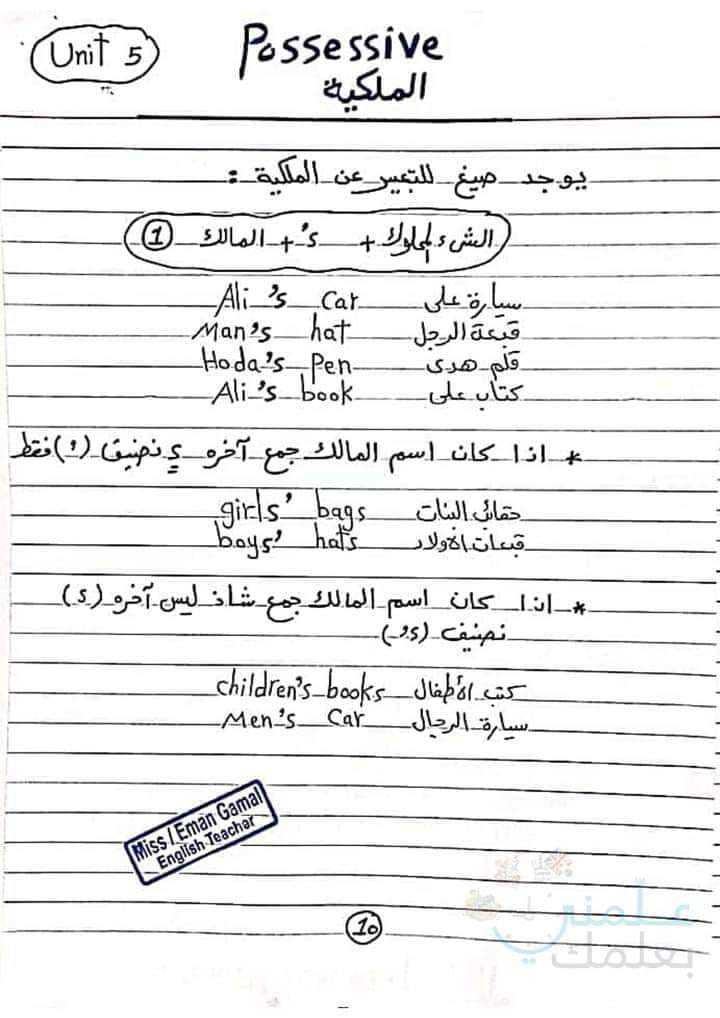 Unit 5
Possessive
الملكية
يوجد صيغ للتعبير عن الملكية :
① المالك + 's + الشيء المملوك
Ali's car سيارة على
Man's hat قبعة الرجل
Hoda's pen قلم هدى
Ali's book كتاب على
* اذا كان اسم المالك جمع آخره s نضيف (') فقط
girls' bags حقائب البنات
boys' hats قبعات الأولاد
* اذا كان اسم المالك جمع شاذ ليس آخره (s)
نضيف ('s)
children's books كتب الأطفال
Men's car سيارة الرجال
Miss / Eman Gamal
English Teacher
10
علمني
بعلمك